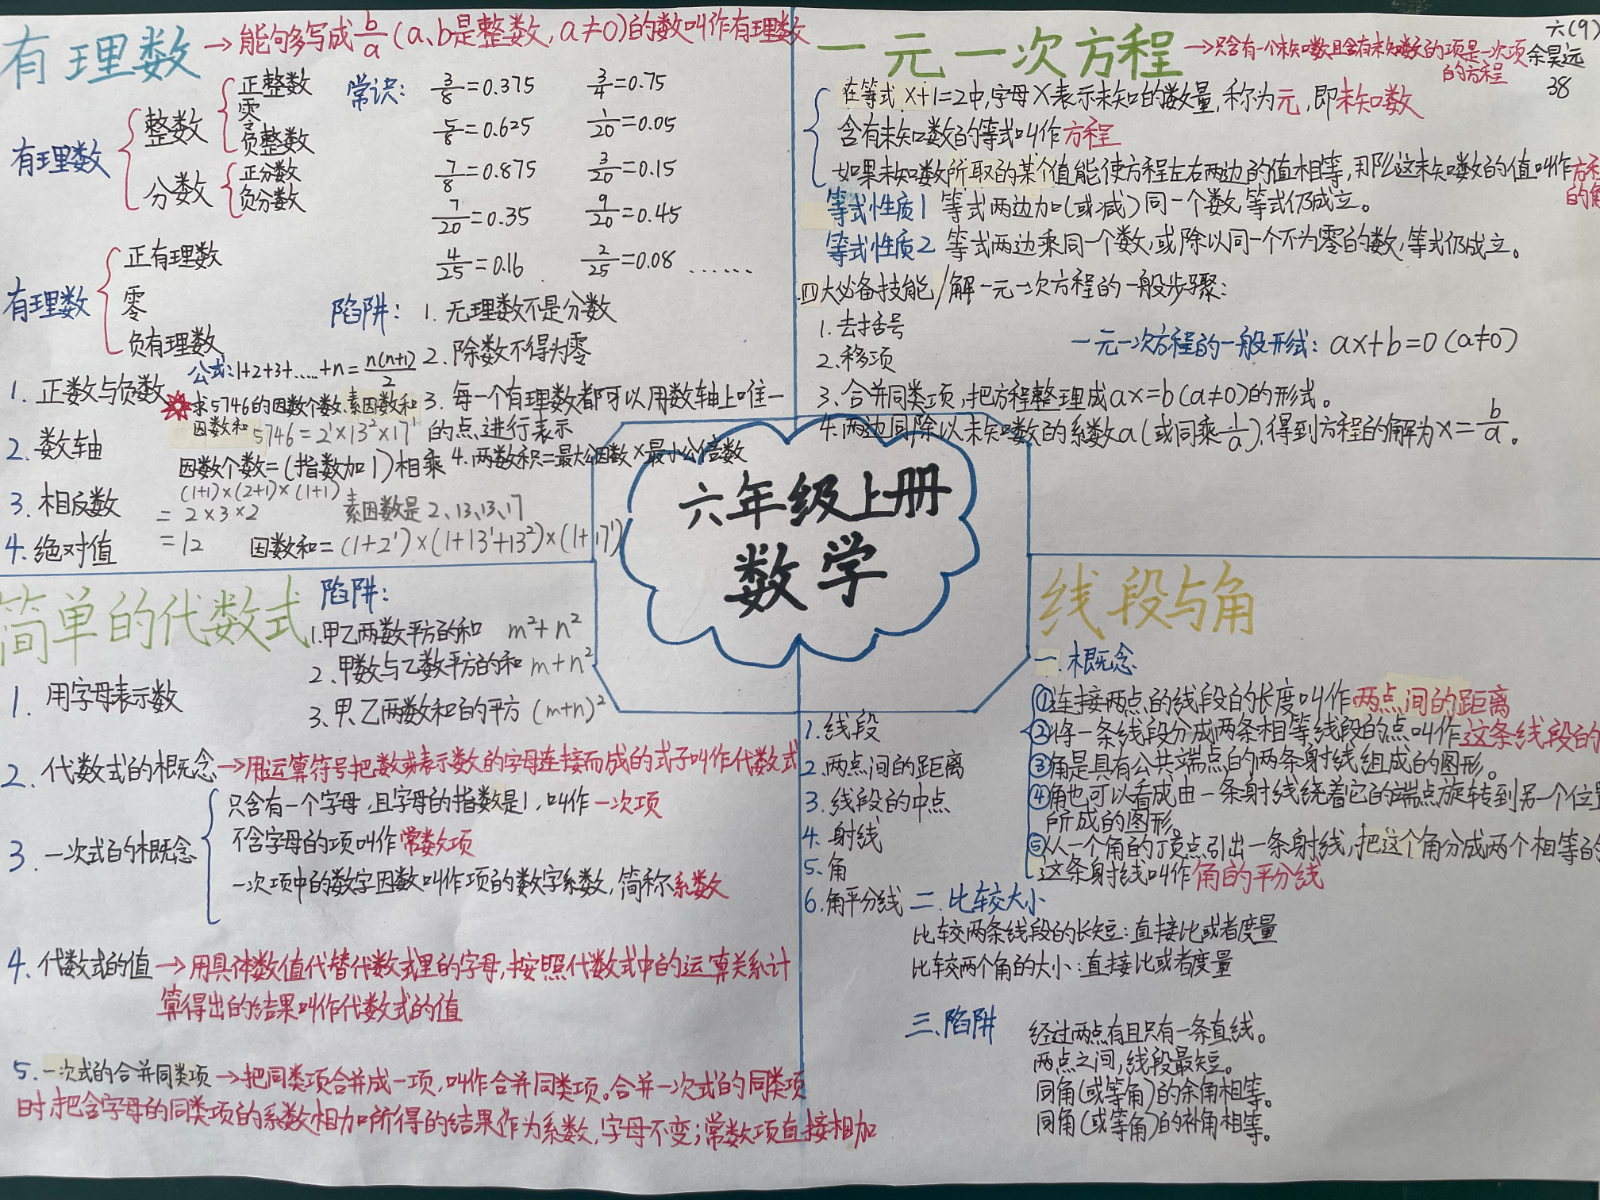 有理数→能够写成b/a(a、b是整数,a≠0)的数叫作有理数
有理数
整数
正整数
零
负整数
分数
正分数
负分数
常识:
3/8=0.375 3/4=0.75
5/8=0.625 1/20=0.05
7/8=0.875 3/20=0.15
7/20=0.35 9/20=0.45
4/25=0.16 2/25=0.08 ……
有理数
正有理数
零
负有理数
陷阱:
1.无理数不是分数
2.除数不得为零
3.每一个有理数都可以用数轴上唯一
的点进行表示
4.两数积=最大公因数×最小公倍数
1.正数与负数
2.数轴
3.相反数
4.绝对值
公式:1+2+3+……+n=n(n+1)/2
求5746的因数个数、素因数和
因数和 5746=2¹×13²×17¹
因数个数=(指数加1)相乘
(1+1)×(2+1)×(1+1)
=2×3×2
=12
素因数是2、13、13、17
因数和=(1+2¹)×(1+13¹+13²)×(1+17¹)
六(9)
余昊远
38
一元一次方程→只含有一个未知数且含有未知数的项是一次项
的方程
在等式x+1=2中,字母x表示未知的数量,称为元,即未知数
含有未知数的等式叫作方程
如果未知数所取的某个值能使方程左右两边的值相等,那么这未知数的值叫作方程
的解
等式性质1 等式两边加(或减)同一个数,等式仍成立。
等式性质2 等式两边乘同一个数,或除以同一个不为零的数,等式仍成立。
四大必备技能/解一元一次方程的一般步骤:
1.去括号
2.移项
一元一次方程的一般形式:ax+b=0(a≠0)
3.合并同类项,把方程整理成ax=b(a≠0)的形式。
4.两边同除以未知数的系数a(或同乘1/a),得到方程的解为x=b/a。
六年级上册
数学
简单的代数式
陷阱:
1.甲乙两数平方的和 m²+n²
2.甲数与乙数平方的和 m+n²
3.甲、乙两数和的平方 (m+n)²
1.用字母表示数
2.代数式的概念→用运算符号把数或表示数的字母连接而成的式子叫作代数式
3.一次式的概念
只含有一个字母,且字母的指数是1,叫作一次项
不含字母的项叫作常数项
一次项中的数字因数叫作项的数字系数,简称系数
4.代数式的值→用具体数值代替代数式里的字母,按照代数式中的运算关系计
算得出的结果叫作代数式的值
5.一次式的合并同类项→把同类项合并成一项,叫作合并同类项。合并一次式的同类项
时,把含字母的同类项的系数相加所得的结果作为系数,字母不变;常数项直接相加
线段与角
1.线段
2.两点间的距离
3.线段的中点
4.射线
5.角
6.角平分线
一.概念
①连接两点的线段的长度叫作两点间的距离
②将一条线段分成两条相等线段的点叫作这条线段的
③角是具有公共端点的两条射线组成的图形。
④角也可以看成由一条射线绕着它的端点旋转到另一个位置
所成的图形
⑤从一个角的顶点引出一条射线,把这个角分成两个相等的
这条射线叫作角的平分线
二.比较大小
比较两条线段的长短:直接比或者度量
比较两个角的大小:直接比或者度量
三.陷阱
经过两点有且只有一条直线。
两点之间,线段最短。
同角(或等角)的余角相等。
同角(或等角)的补角相等。